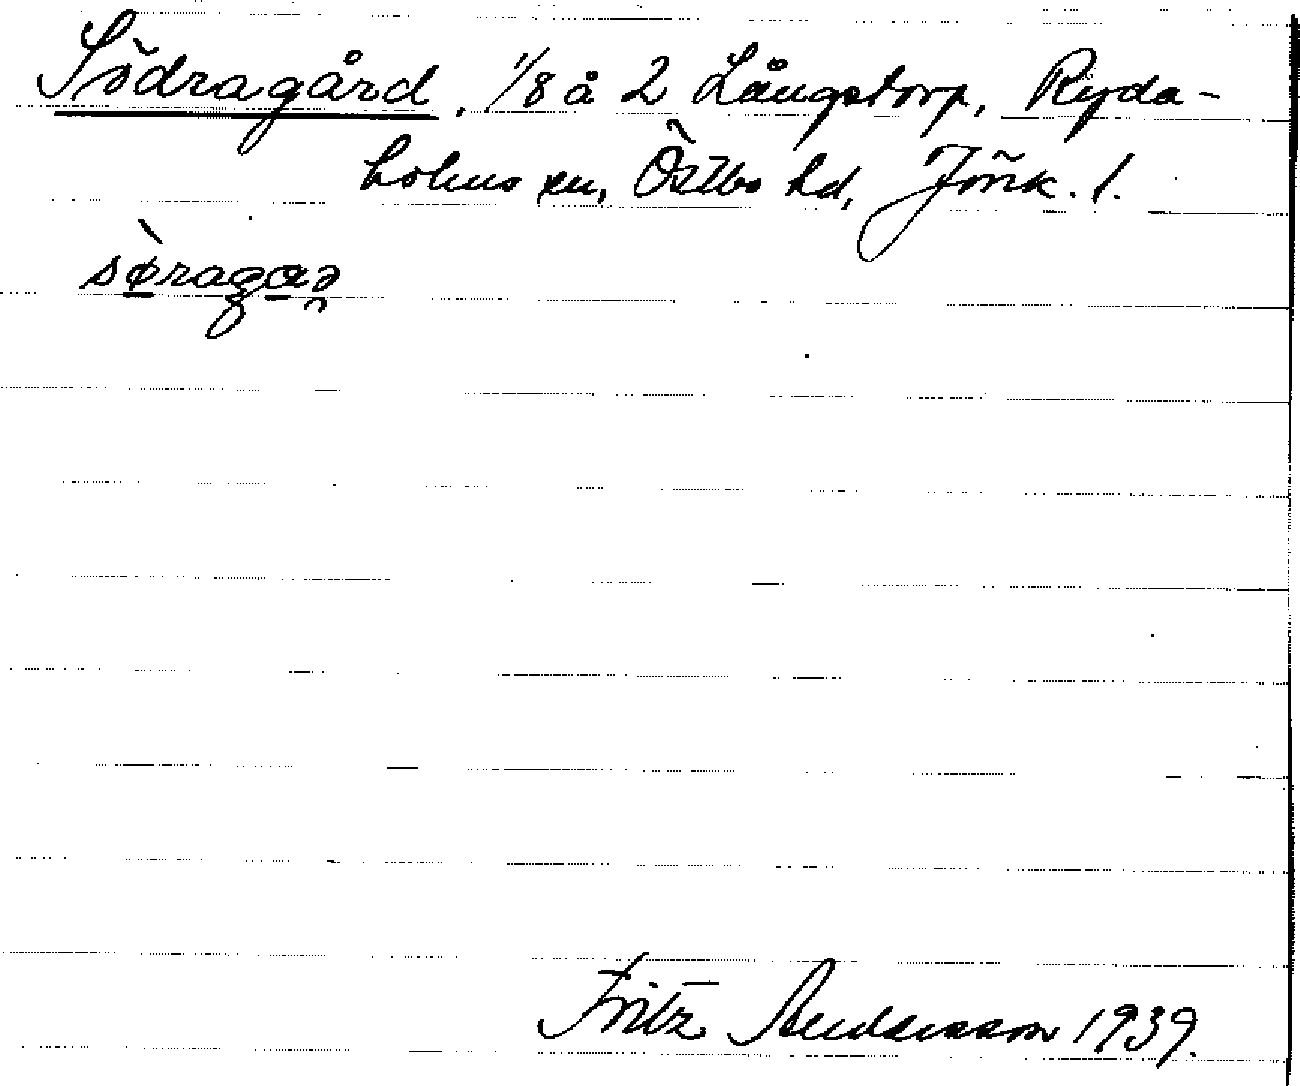 Södragård, 1/8 å 2 Långstorp, Ryda-
holms sn, Östbo hd, Jönk. l.
sø̀ragɑə̯
Fritz Andersson 1939.